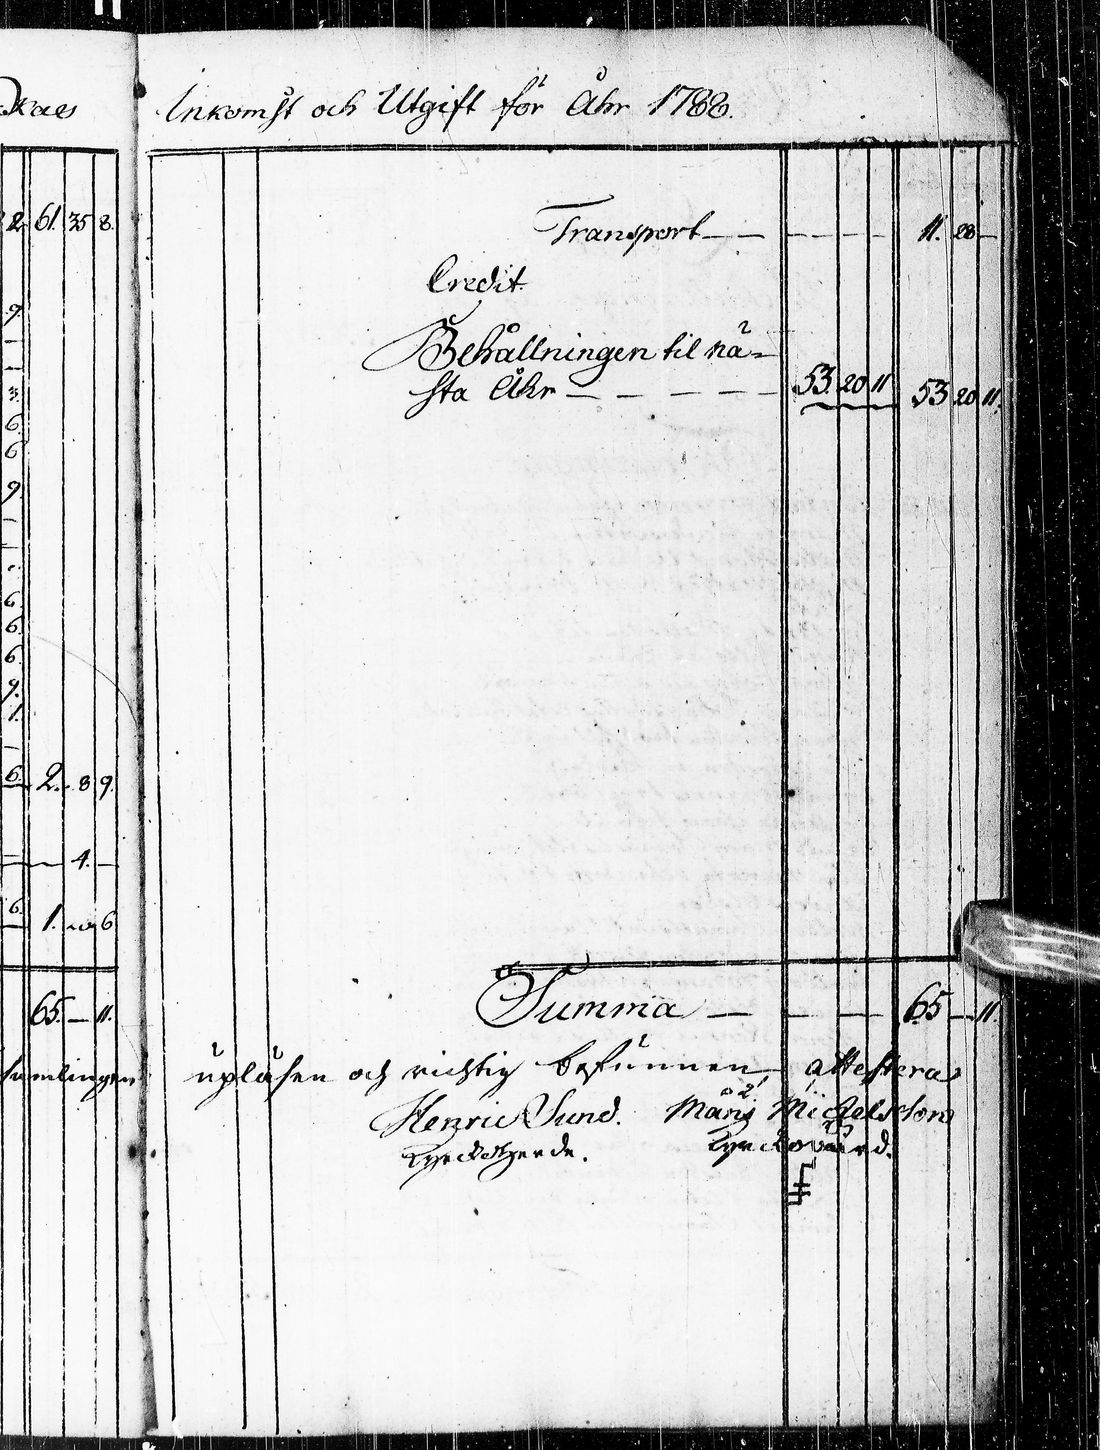 Inkomst och Utgift för Åhr 1788.
Transport — — — — — — 11. 28 —
Credit.
Behållningen til nä-
sta Åhr — — — — — 53. 20 11 53 20 11.
Summa — — — — 65 — 11.
upläsen och richtig befunnen attestera
Henric Sund. Måns Michelsson
Kyrckovärd.
61. 35 8.
9
3
6
6
9
6
6
6
9.
1.
6. 2. 8 9.
4. —
6. 1. 6
65. — 11.
samlingen